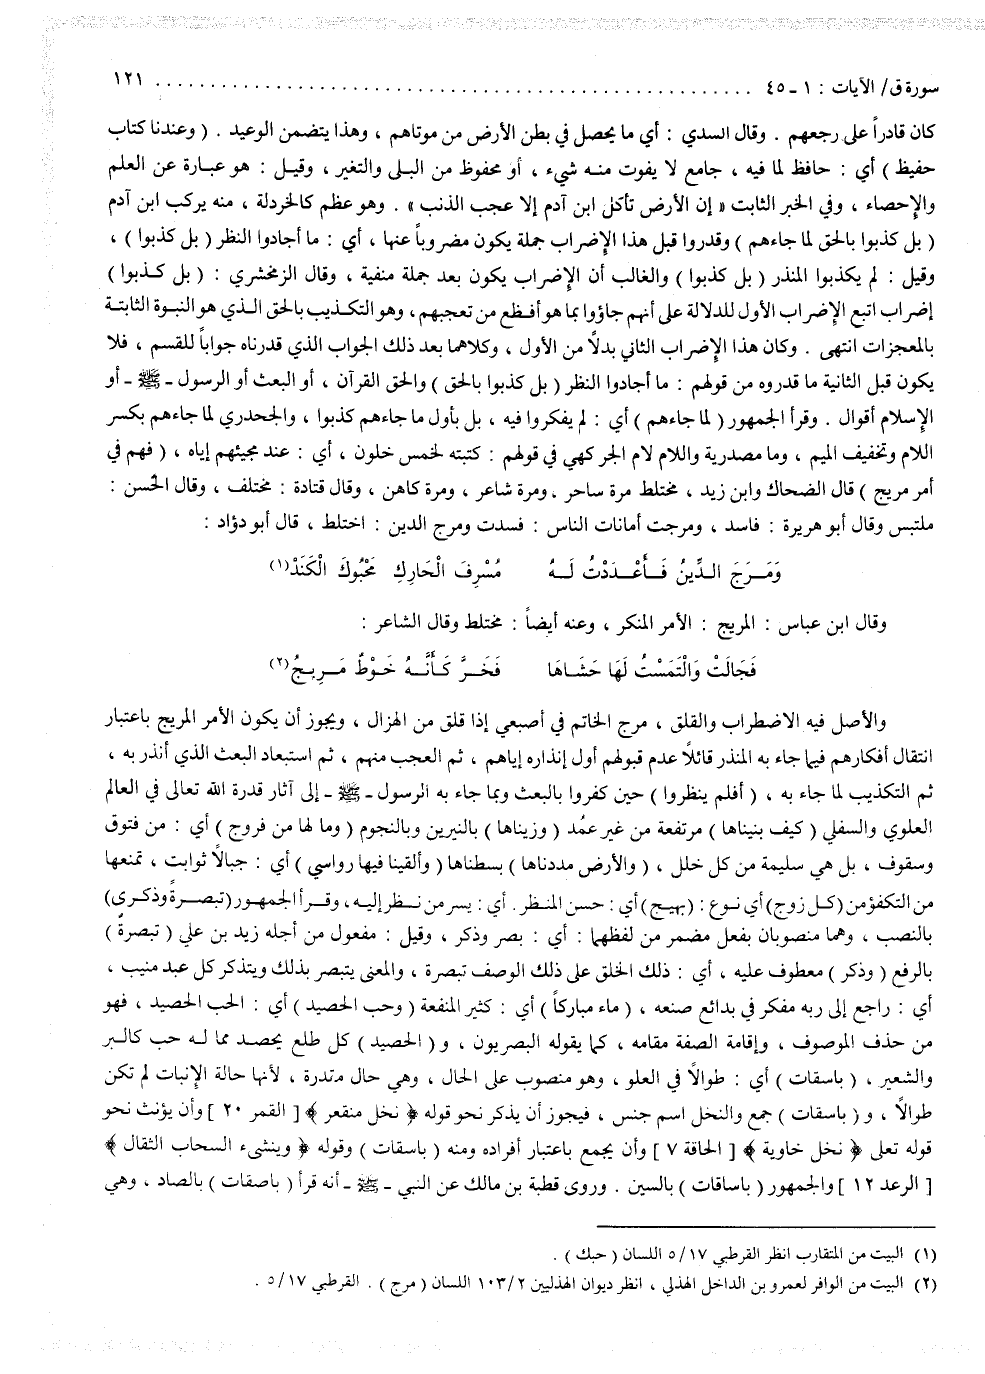 سورة ق/ الآيات : ١ ـ ٤٥ ............................................................ ١٢١
كان قادراً على رجعهم . وقال السدي : أي ما يحصل في بطن الأرض من موتاهم ، وهذا يتضمن الوعيد . ( وعندنا كتاب
حفيظ ) أي : حافظ لما فيه ، جامع لا يفوت منه شيء ، أو محفوظ من البلى والتغير ، وقيل : هو عبارة عن العلم
والإحصاء ، وفي الخبر الثابت « إن الأرض تأكل ابن آدم إلا عجب الذنب » . وهو عظم كالخردلة ، منه يركب ابن آدم
( بل كذبوا بالحق لما جاءهم ) وقدروا قبل هذا الإضراب جملة يكون مضروباً عنها ، أي : ما أجادوا النظر ( بل كذبوا ) ،
وقيل : لم يكذبوا المنذر ( بل كذبوا ) والغالب أن الإضراب يكون بعد جملة منفية ، وقال الزمخشري : ( بل كذبوا )
إضراب اتبع الإضراب الأول للدلالة على أنهم جاؤوا بما هو أفظع من تعجبهم ، وهو التكذيب بالحق الذي هو النبوة الثابتة
بالمعجزات انتهى . وكان هذا الإضراب الثاني بدلاً من الأول ، وكلاهما بعد ذلك الجواب الذي قدرناه جواباً للقسم ، فلا
يكون قبل الثانية ما قدروه من قولهم : ما أجادوا النظر ( بل كذبوا بالحق ) والحق القرآن ، أو البعث أو الرسول ـ ﷺ ـ أو
الإسلام أقوال . وقرأ الجمهور ( لما جاءهم ) أي : لم يفكروا فيه ، بل بأول ما جاءهم كذبوا ، والجحدري لما جاءهم بكسر
اللام وتخفيف الميم ، وما مصدرية واللام لام الجر كهي في قولهم : كتبته لخمس خلون ، أي : عند مجيئهم إياه ، ( فهم في
أمر مريج ) قال الضحاك وابن زيد ، مختلط مرة ساحر ، ومرة شاعر ، ومرة كاهن ، وقال قتادة : مختلف ، وقال الحسن :
ملتبس وقال أبو هريرة : فاسد ، ومرجت أمانات الناس : فسدت ومرج الدين : اختلط ، قال أبو دؤاد :
وَمَرَجَ الدِّينُ فَأَعْدَدْتُ لَهُ مُسْرِفَ الْحَارِكِ مَحْبُوكَ الْكَتَدْ(١)
وقال ابن عباس : المريج : الأمر المنكر ، وعنه أيضاً : مختلط وقال الشاعر :
فَجَالَتْ وَالْتَمَسْتُ لَهَا حَشَاهَا فَخَرَّ كَأَنَّهُ خَوْطٌ مَرِيجُ(٢)
والأصل فيه الاضطراب والقلق ، مرج الخاتم في أصبعي إذا قلق من الهزال ، ويجوز أن يكون الأمر المريج باعتبار
انتقال أفكارهم فيما جاء به المنذر قائلاً عدم قبولهم أول إنذاره إياهم ، ثم العجب منهم ، ثم استبعاد البعث الذي أنذر به ،
ثم التكذيب لما جاء به ، ( أفلم ينظروا ) حين كفروا بالبعث وبما جاء به الرسول ـ ﷺ ـ إلى آثار قدرة الله تعالى في العالم
العلوي والسفلي ( كيف بنيناها ) مرتفعة من غير عمُد ( وزيناها ) بالنيرين وبالنجوم ( وما لها من فروج ) أي : من فتوق
وسقوف ، بل هي سليمة من كل خلل ، ( والأرض مددناها ) بسطناها ( وألقينا فيها رواسي ) أي : جبالاً ثوابت ، تمنعها
من التكفؤ من ( كل زوج ) أي نوع : ( بهيج ) أي : حسن المنظر . أي : يسر من نظر إليه ، وقرأ الجمهور ( تبصرةً وذكرى )
بالنصب ، وهما منصوبان بفعل مضمر من لفظهما : أي : بصر وذكر ، وقيل : مفعول من أجله زيد بن علي ( تبصرةٌ )
بالرفع ( وذكر ) معطوف عليه ، أي : ذلك الخلق على ذلك الوصف تبصرة ، والمعنى يتبصر بذلك ويتذكر كل عبد منيب ،
أي : راجع إلى ربه مفكر في بدائع صنعه ، ( ماء مباركاً ) أي : كثير المنفعة ( وحب الحصيد ) أي : الحب الحصيد ، فهو
من حذف الموصوف ، وإقامة الصفة مقامه ، كما يقوله البصريون ، و ( الحصيد ) كل طلع يحصد مما له حب كالبر
والشعير ، ( باسقات ) أي : طوالاً في العلو ، وهو منصوب على الحال ، وهي حال متدرة ، لأنها حالة الإنبات لم تكن
طوالاً ، و ( باسقات ) جمع والنخل اسم جنس ، فيجوز أن يذكر نحو قوله ﴿ نخل منقعر ﴾ [ القمر ٢٠ ] وأن يؤنث نحو
قوله تعلى ﴿ نخل خاوية ﴾ [ الحاقة ٧ ] وأن يجمع باعتبار أفراده ومنه ( باسقات ) وقوله ﴿ وينشىء السحاب الثقال ﴾
[ الرعد ١٢ ] والجمهور ( باساقات ) بالسين . وروى قطبة بن مالك عن النبي ـ ﷺ ـ أنه قرأ ( باصقات ) بالصاد ، وهي
(١) البيت من المتقارب انظر القرطبي ٥/١٧ اللسان ( حبك ) .
(٢) البيت من الوافر لعمرو بن الداخل الهذلي ، انظر ديوان الهذليين ١٠٣/٢ اللسان ( مرج ) . القرطبي ٥/١٧ .